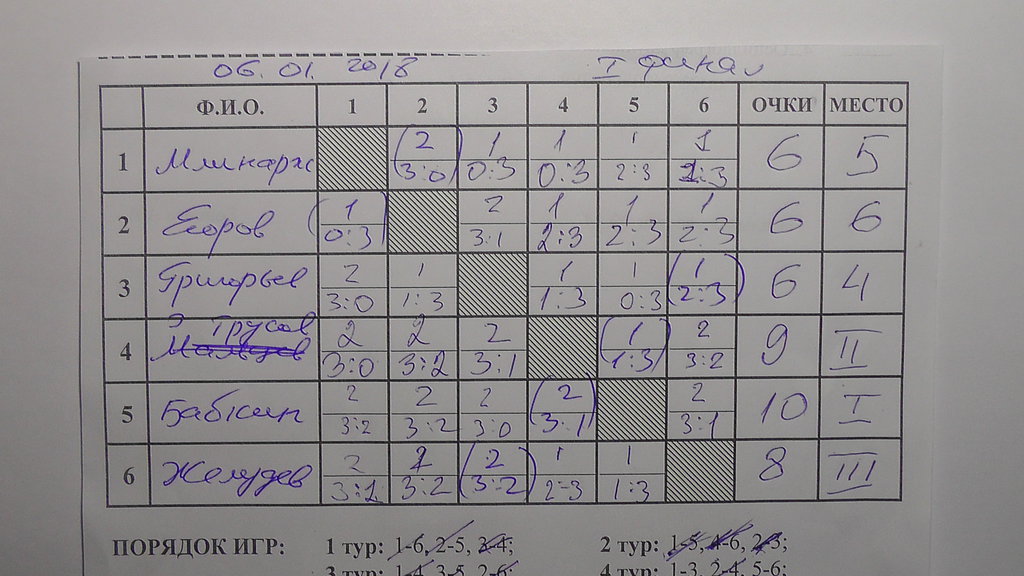 06.01. 2018 I финал
Ф.И.О. 1 2 3 4 5 6 ОЧКИ МЕСТО
1 2 1 1 1 1 6 5
3:0 0:3 0:3 2:3 2:3
2 Егоров 1 2 1 1 1 6 6
0:3 3:1 2:3 2:3 2:3
3 Григорьев 2 1 1 1 1 6 4
3:0 1:3 1:3 0:3 2:3
Трусов
4 2 2 2 1 2 9 II
3:0 3:2 3:1 1:3 3:2
5 Бабкин 2 2 2 2 2 10 I
3:2 3:2 3:0 3:1 3:1
6 Желудев 2 2 2 1 1 8 III
3:2 3:2 3:2 2:3 1:3
ПОРЯДОК ИГР: 1 тур: 1-6, 2-5, 3-4; 2 тур: 1-5, 4-6, 2-3;
3 тур: 1-4, 3-5, 2-6; 4 тур: 1-3, 2-4, 5-6;